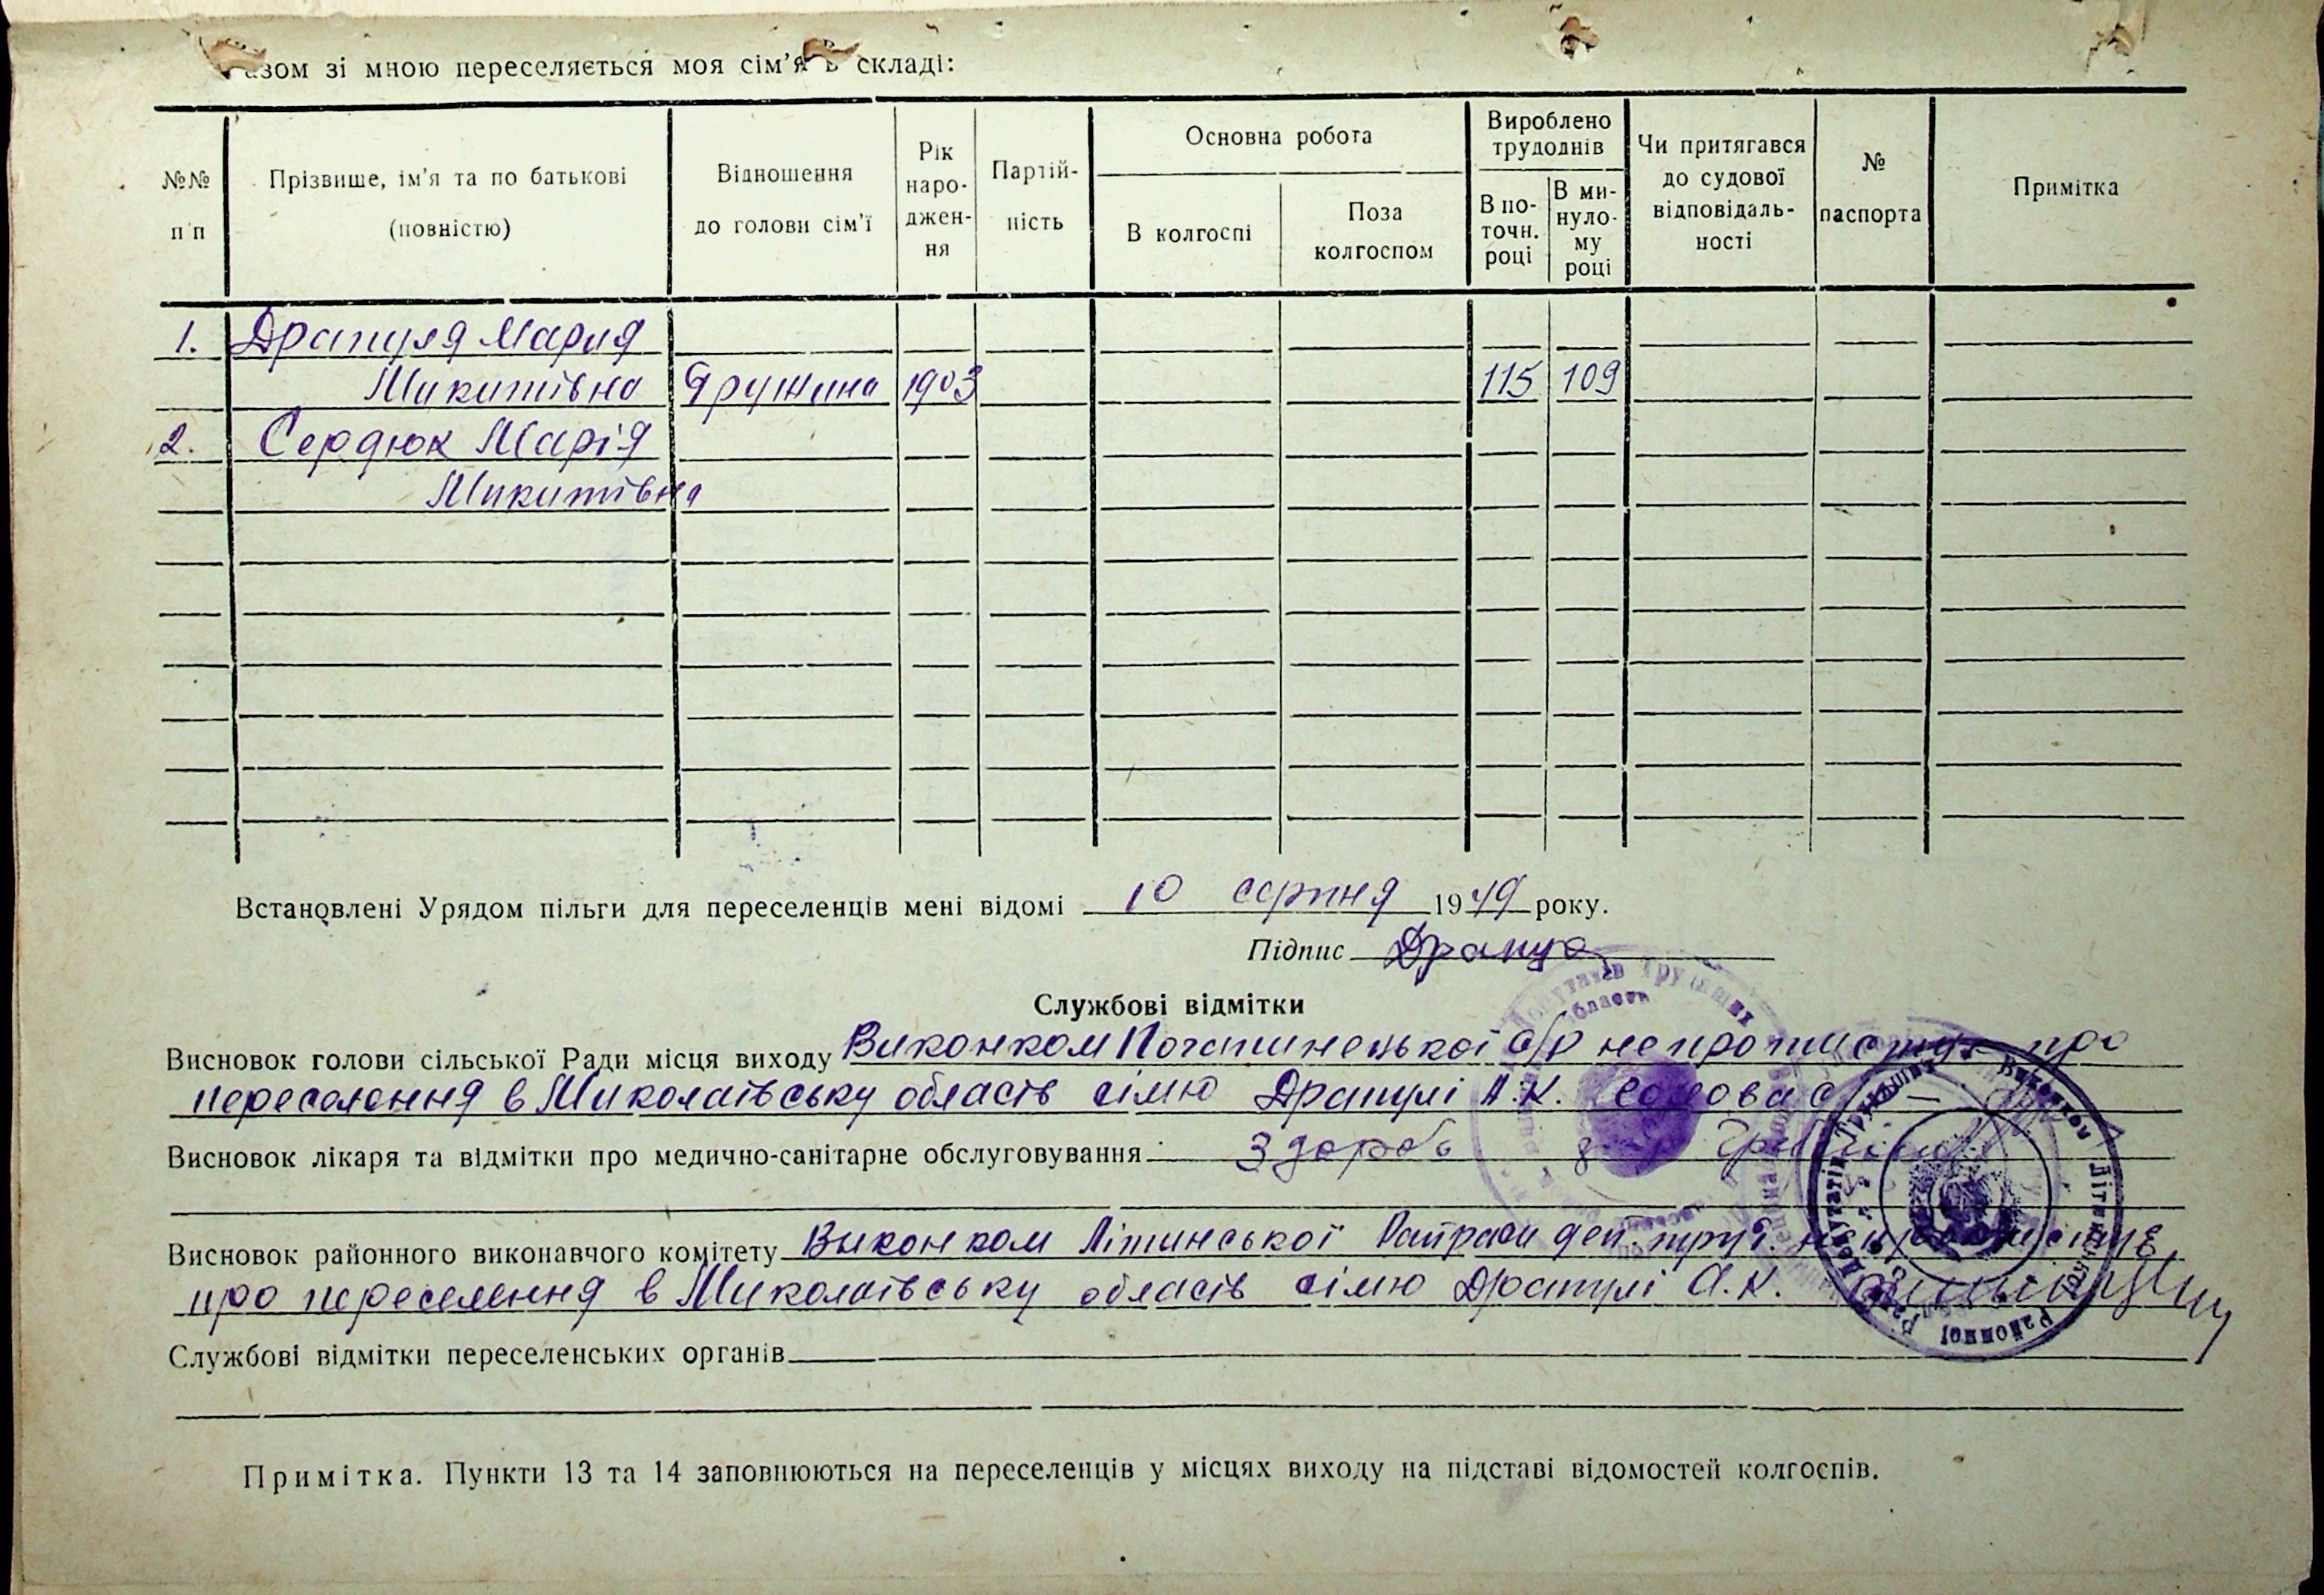 Разом зі мною переселяється моя сім'я в складі:
№№ п п
Прізвише, ім'я та по батькові (повністю)
Відношення до голови сім'ї
Рік народження
Партійність
Основна робота
В колгоспі
Поза колгоспом
Вироблено трудоднів
В поточн. році
В минулому році
Чи притягався до судової відповідальності
№ паспорта
Примітка
1. Драпуля Мария
Микитівна дружина 1903 115 109
2. Сердюк Марія
Микитівна
Встановлені Урядом пільги для переселенців мені відомі 10 серпня 1949 року.
Підпис
Службові відмітки
Висновок голови сільської Ради місця виходу Виконком с/р не протистує про
переселення в Миколаівську область сімю Драпулі А.К. Голова с/р
Висновок лікаря та відмітки про медично-санітарне обслуговування Здорові
Висновок районного виконавчого комітету Виконком Літинської Райради деп. труд. не протистує
про переселення в Миколаівську область сімю Драпулі А.К.
Службові відмітки переселенських органів
Примітка. Пункти 13 та 14 заповнюються на переселенців у місцях виходу на підставі відомостей колгоспів.